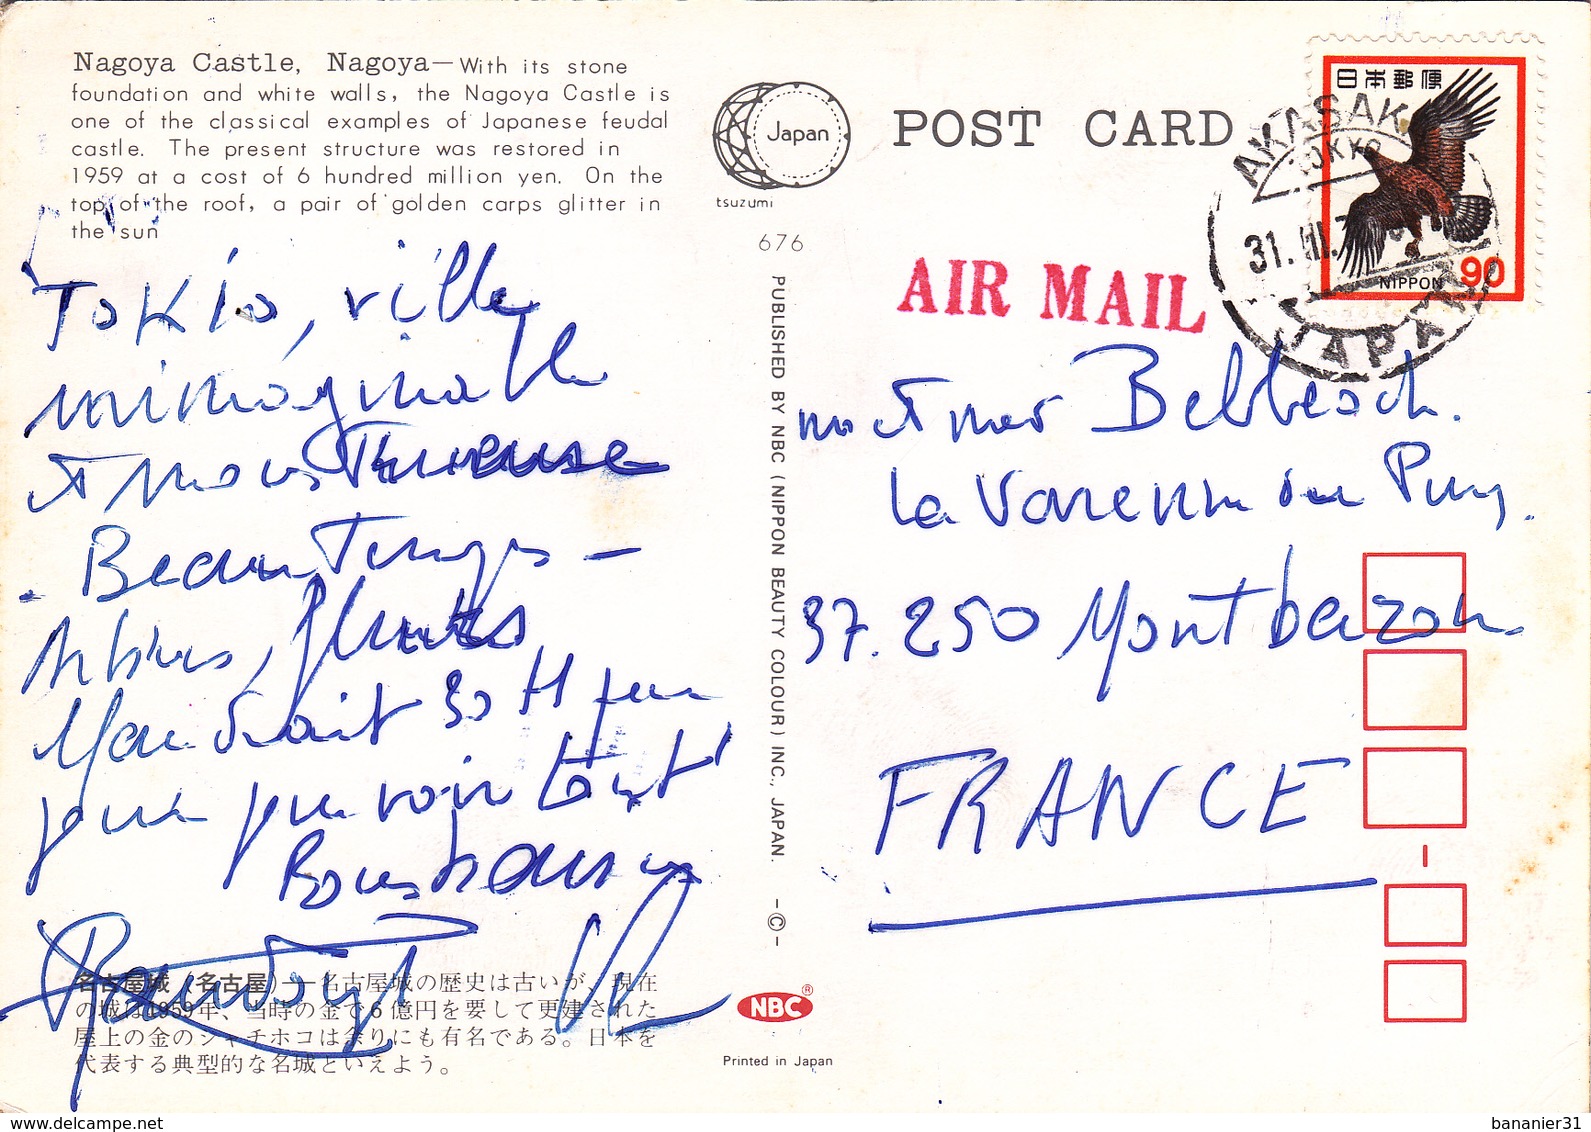 Nagoya Castle, Nagoya—With its stone
foundation and white walls, the Nagoya Castle is
one of the classical examples of Japanese feudal
castle. The present structure was restored in
1959 at a cost of 6 hundred million yen. On the
top of the roof, a pair of golden carps glitter in
the sun
Japan
tsuzumi
676
POST CARD
日本郵便
NIPPON 90
AKASAKA
TOKYO
31. III.
JAPAN
AIR MAIL
Tokio, ville
inimaginable
et
Beau Temps —
Arbres, fleurs
faudrait 30 H par
jour pour voir tout
PUBLISHED BY NBC (NIPPON BEAUTY COLOUR) INC., JAPAN. -©-
et Belbeoch.
La Varenne du Puy.
37.250 Montbazon
FRANCE
名古屋城(名古屋)——名古屋城の歴史は古いが、現在
の城は1959年、当時の金で6億円を要して更建された
屋上の金のシャチホコは余りにも有名である。日本を
代表する典型的な名城といえよう。
NBC®
Printed in Japan
delcampe.net
bananier31